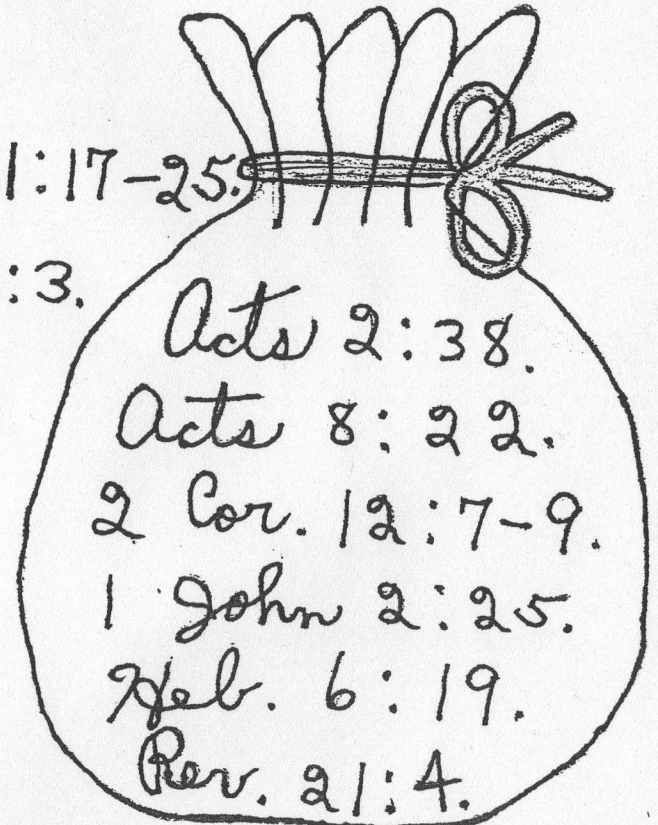 1:17-25.
:3.
Acts 2:38.
Acts 8:22.
2 Cor. 12:7-9.
1 John 2:25.
Heb. 6:19.
Rev. 21:4.